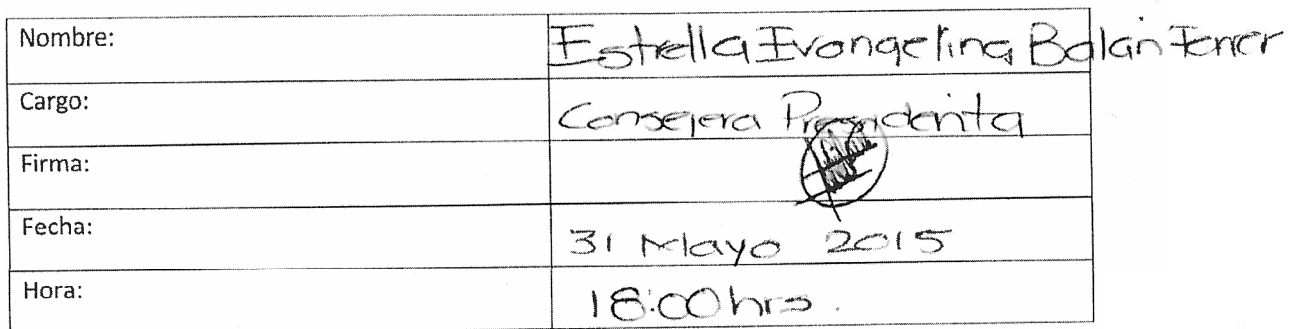 Nombre: Estrella Evangelina Balan Ferrer
Cargo: Consejera Presidenta
Firma:
Fecha: 31 Mayo 2015
Hora: 18:00 hrs.